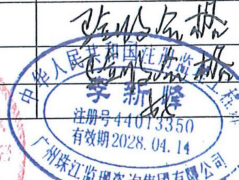 验收合格
验收合格
中华人民共和国注册监理工程
李新
注册号44013350
有效期2028.04.14
广州珠江监理咨询集团有限公司